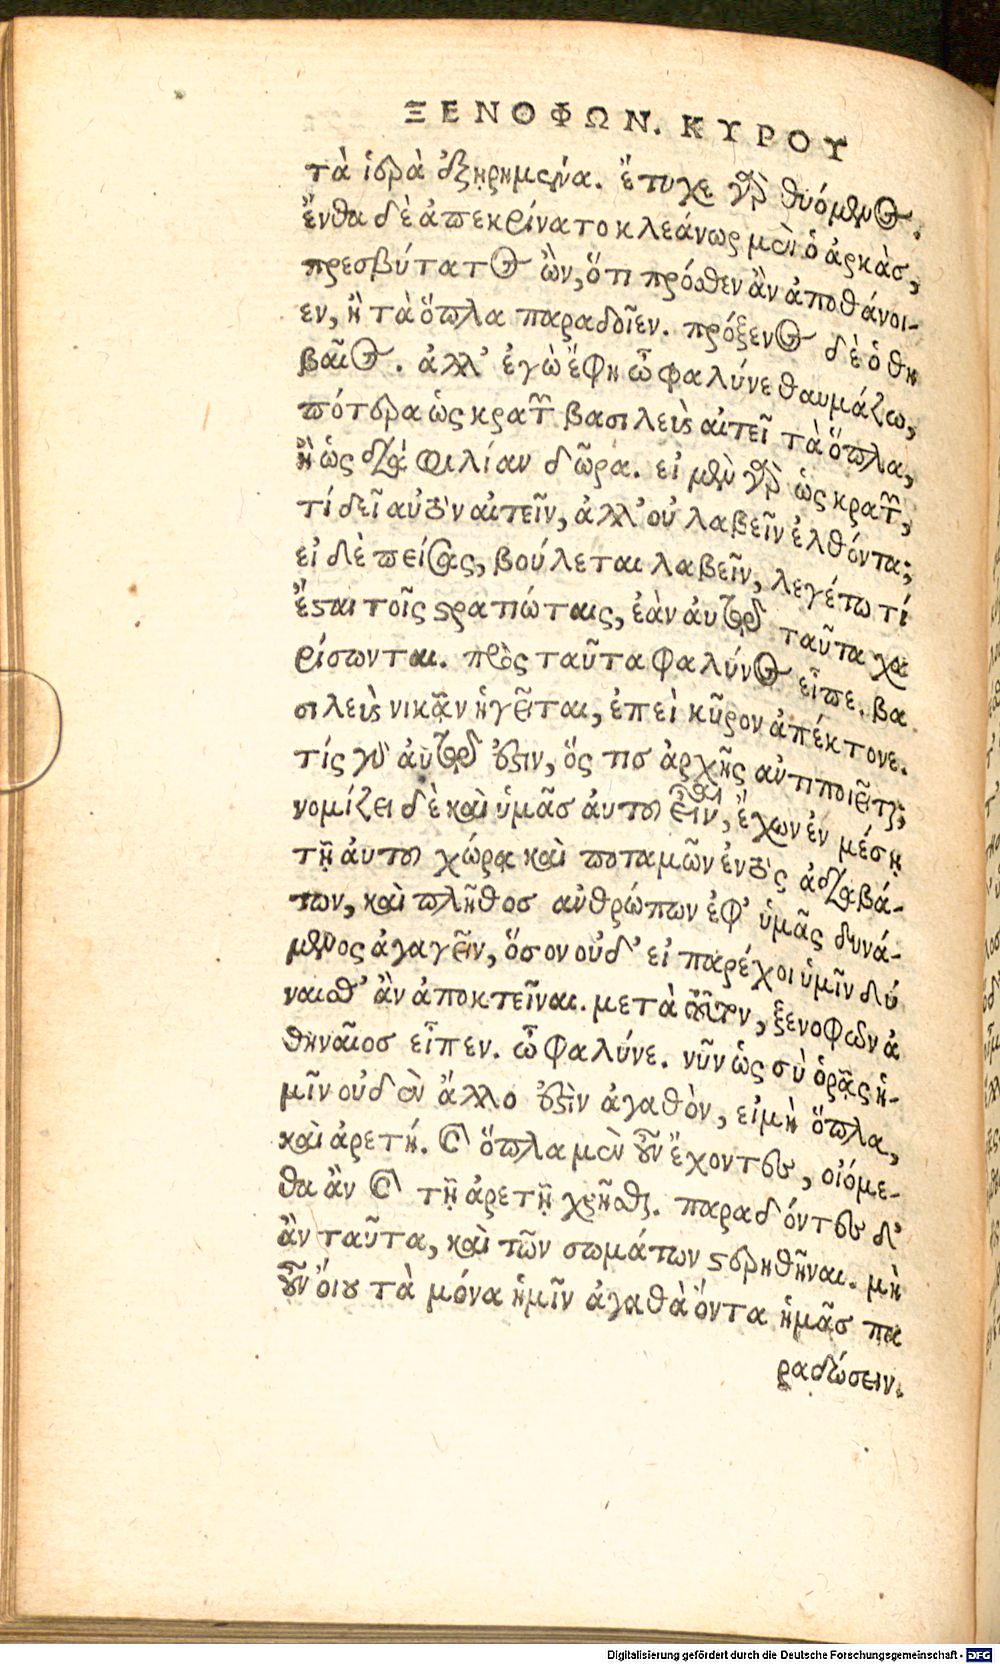 ΞΕΝΟΦΩΝ. ΚΥΡΟΥ
τὰ ἱερὰ ἐξῃρημένα. ἔτυχε γὰρ θυόμενος.
ἔνθα δὲ ἀπεκρίνατο κλεάνωρ μὲν ὁ ἀρκὰς,
πρεσβύτατος ὢν, ὅτι πρόσθεν ἂν ἀποθάνοι-
εν, ἢ τὰ ὅπλα παραδοῖεν. πρόξενος δὲ ὁ θη
βαῖος. ἀλλ’ ἐγὼ ἔφη ὦ φαλύνε θαυμάζω,
πότερα ὡς κρατῶν βασιλεὺς αἰτεῖ τὰ ὅπλα,
ἢ ὡς διὰ φιλίαν δῶρα. εἰ μὲν γὰρ ὡς κρατῶν,
τί δεῖ αὐτὸν αἰτεῖν, ἀλλ’ οὐ λαβεῖν ἐλθόντα;
εἰ δὲ πείσας, βούλεται λαβεῖν, λεγέτω τί
ἔσται τοῖς στρατιώταις, ἐὰν αὐτῷ ταῦτα χα
ρίσωνται. πρὸς ταῦτα φαλύνος εἶπε. βα
σιλεὺς νικᾷν ἡγεῖται, ἐπεὶ κῦρον ἀπέκτονε.
τίς γὰρ αὐτῷ ἐστιν, ὅς τις ἀρχῆς ἀντιποιεῖται;
νομίζει δὲ καὶ ὑμᾶς αὐτοῦ εἶναι, ἔχων ἐν μέσῃ
τῇ αὐτοῦ χώρᾳ καὶ ποταμῶν ἐντὸς ἀδιαβά-
των, καὶ πλῆθος ἀνθρώπων ἐφ’ ὑμᾶς δυνά-
μενος ἀγαγεῖν, ὅσον οὐδ’ εἰ παρέχοι ὑμῖν δύ
ναισθ’ ἂν ἀποκτεῖναι. μετὰ τοῦτον, ξενοφῶν ἀ
θηναῖος εἶπεν. ὦ φαλύνε. νῦν ὡς σὺ ὁρᾷς ἡ-
μῖν οὐδὲν ἄλλο ἐστὶν ἀγαθὸν, εἰ μὴ ὅπλα,
καὶ ἀρετή. καὶ ὅπλα μὲν οὖν ἔχοντες, οἰόμε-
θα ἂν καὶ τῇ ἀρετῇ χρῆσθαι. παραδόντες δ’
ἂν ταῦτα, καὶ τῶν σωμάτων στερηθῆναι. μὴ
οὖν οἴου τὰ μόνα ἡμῖν ἀγαθὰ ὄντα ἡμᾶς πα
ραδώσειν.
Digitalisierung gefördert durch die Deutsche Forschungsgemeinschaft - DFG